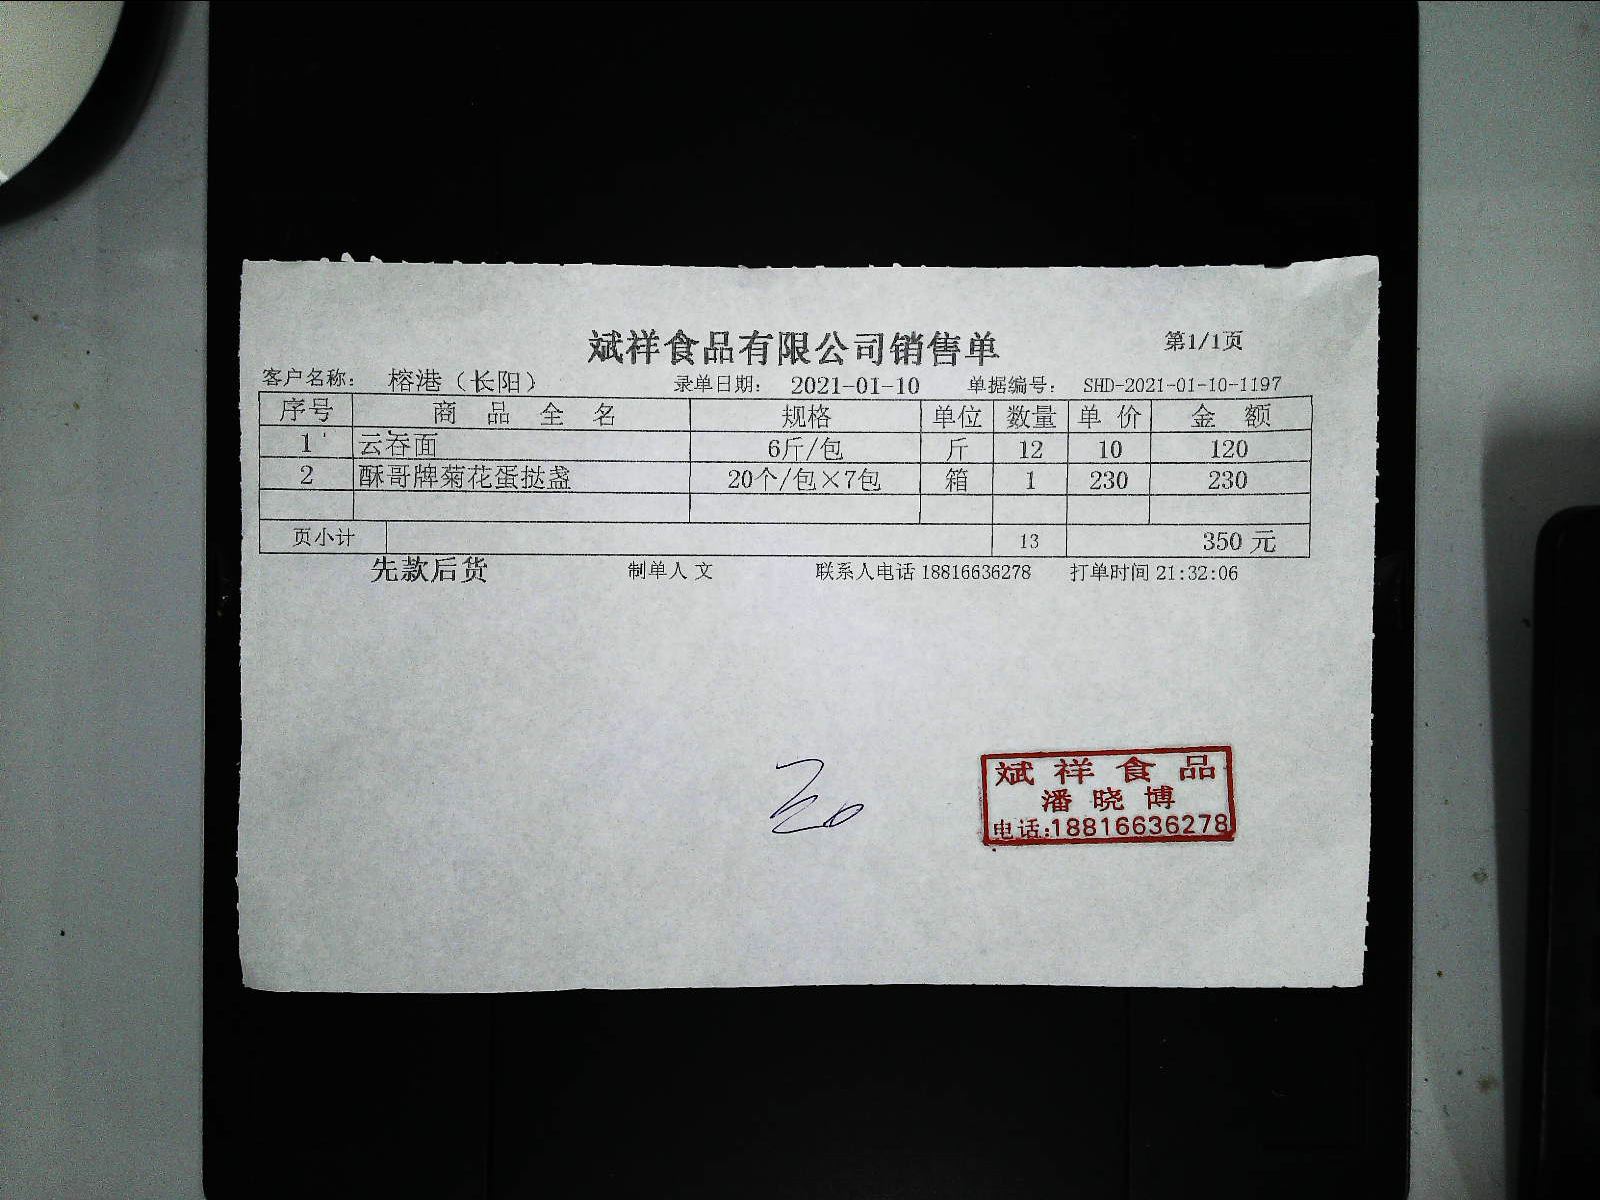 斌祥食品有限公司销售单 第1/1页
客户名称： 榕港（长阳） 录单日期： 2021-01-10 单据编号： SHD-2021-01-10-1197
序号 商品全名 规格 单位 数量 单价 金额
1 云吞面 6斤/包 斤 12 10 120
2 酥哥牌菊花蛋挞盏 20个/包×7包 箱 1 230 230
页小计 13 350 元
先款后货 制单人 文 联系人电话 18816636278 打单时间 21:32:06
斌祥食品
潘晓博
电话:18816636278